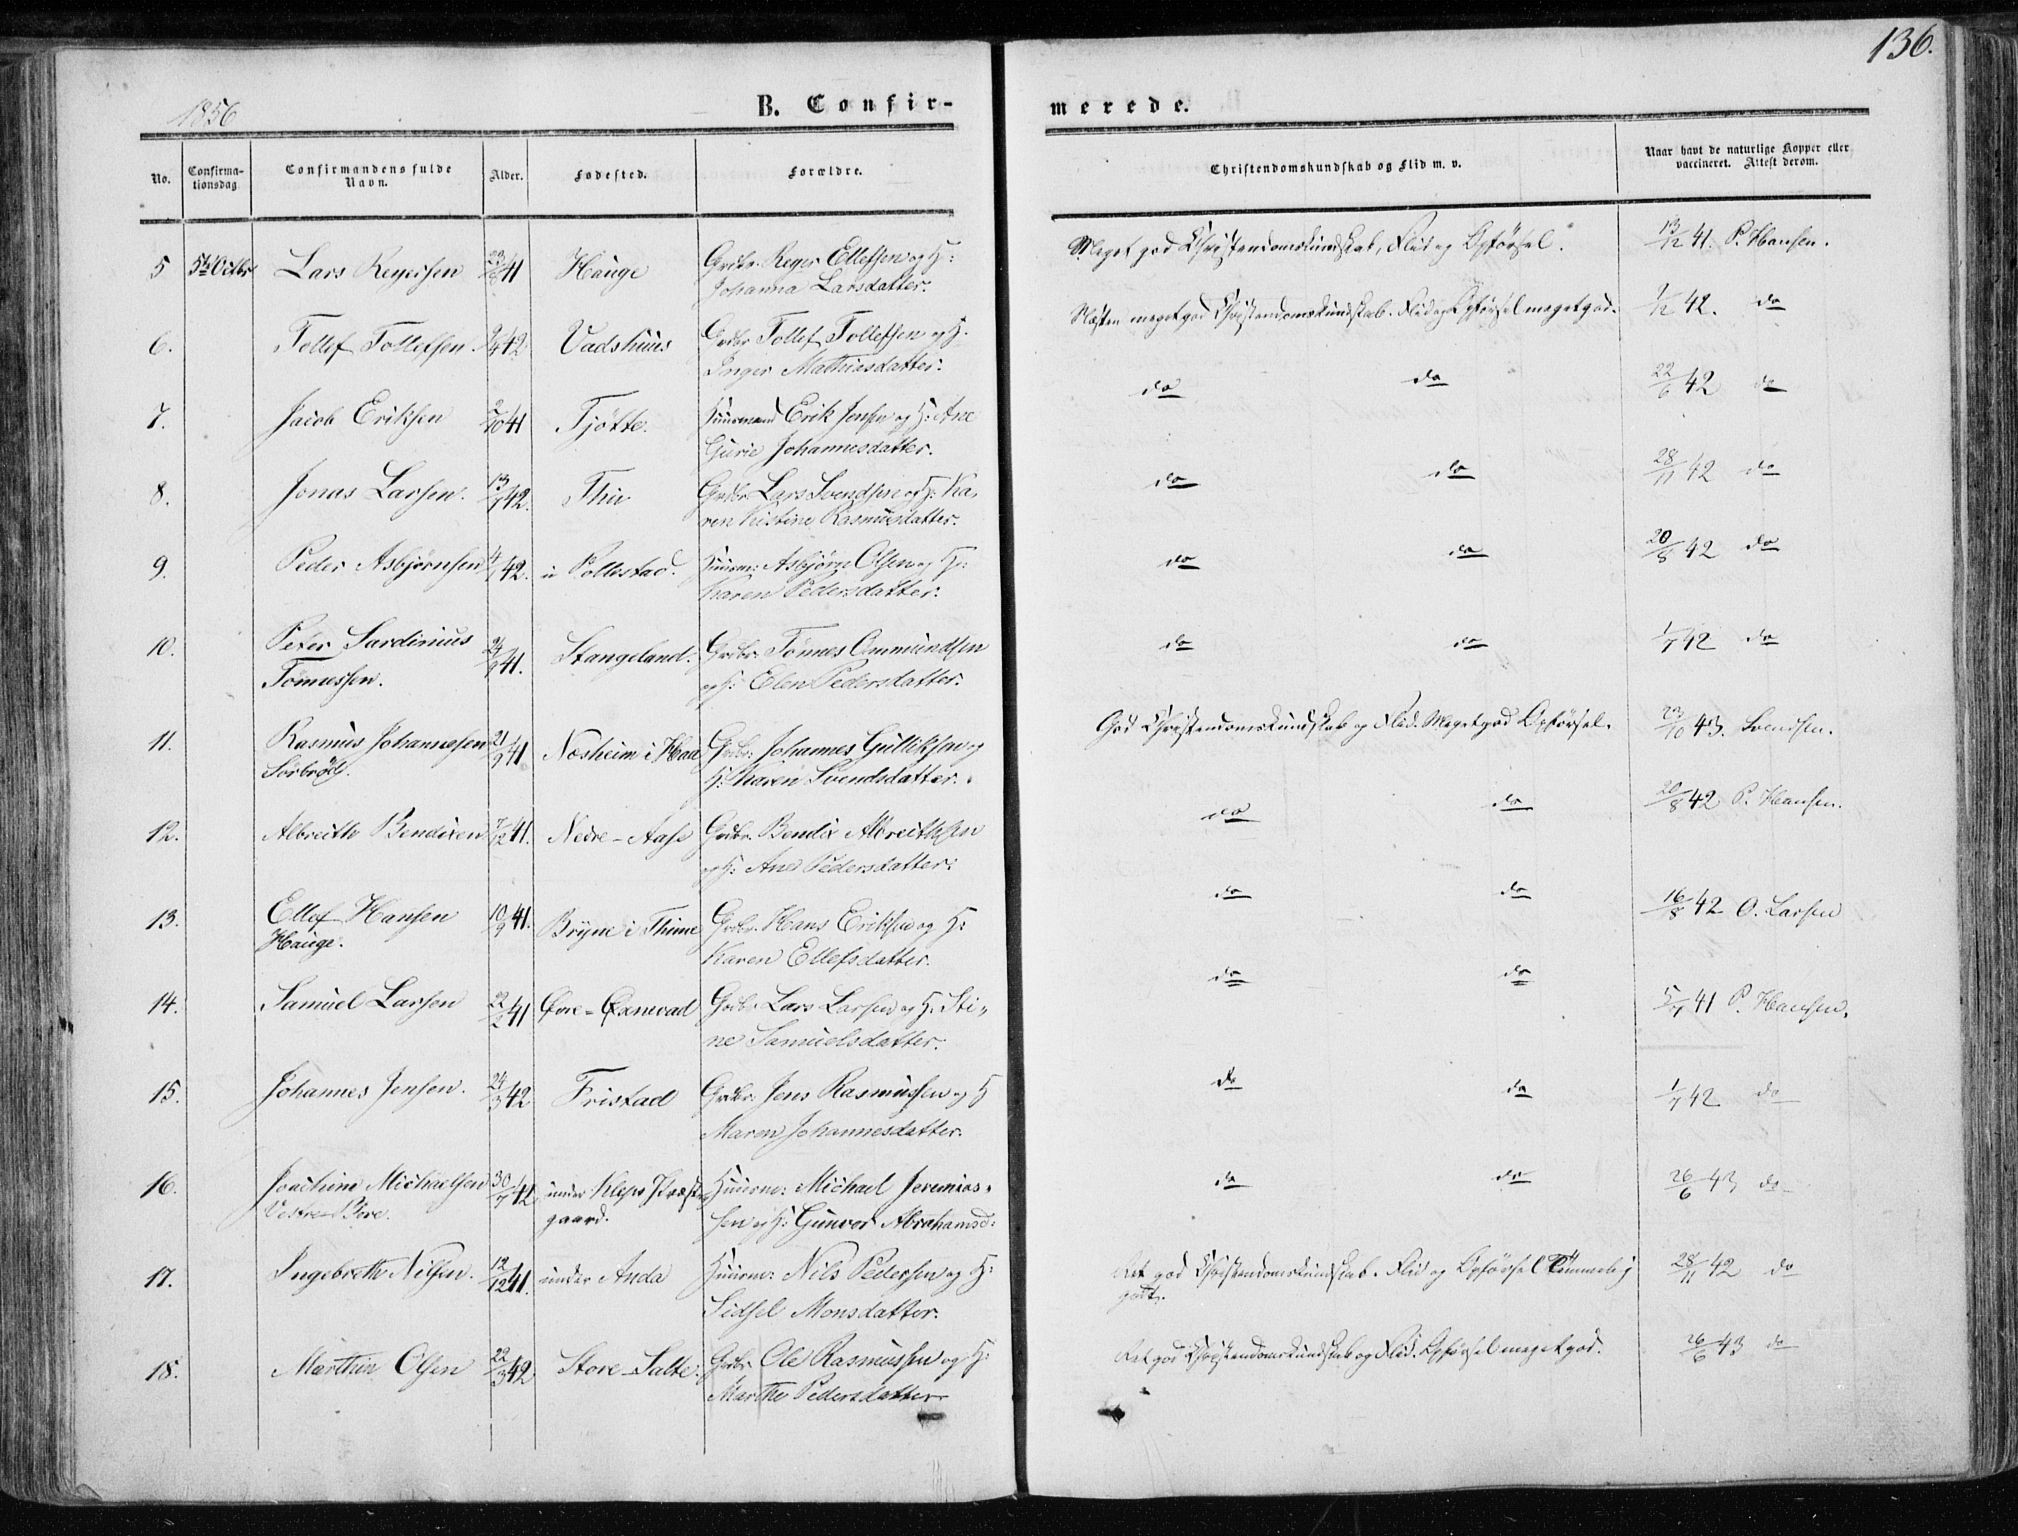 136.
1856
B. Confir-
merede.
No.
Confirma-
tionsdag
Confirmandens fulde
Navn.
Alder.
Fødested.
Forældre.
Christendomskundskab og Flid m. v.
Naar havt de naturlige Kopper eller
vaccineret. Attest derom.
5 5te Octbr Lars Regersen 41 Hauge Grdbr. Reger Ellefsen og H:
Johanna Larsdatter.
Meget god Christendomskundskab, Flid og Opførsel. 13/12 41. P. Hansen.
6. Tollef Tollefsen 42 Vadshuus Grdbr Tollef Tollefsen og H.
Inger Mathiasdatter.
Næsten meget god Christendomskundskab. Flid og Opførsel meget god. 42. do
7. Jacob Eriksen 2/10 41 Tjøtte. Huusmand Erik Jensen og H: Ane
Gurie Johannesdatter.
do do 22/6 42 do
8. Jonas Larsen. 42. Thu Grdbr. Lars Svendsen og H: Ka-
ren Kistine Rasmusdatter.
do do 28/11 42 do
9. Peder Asbjørnsen 42. u Pollestad. Huusm: Asbjørn Olsen og H:
Karen Pedersdatter.
do do 20/8 42 do
10. Peter Sardinius
Tønnessen. 41. Stangeland. Grdbr. Tønnes Ommundsen
og H: Elen Pedersdatter.
do do 1/7 42 do
11. Rasmus Johannesen
Sørbrød. 21/9 41 Nesheim i Haa Grdbr. Johannes Gulliksen og
H: Karen Svendsdatter.
God Christendomskundskab og Flid. Meget god Opførsel. 23/10 43. Svendsen.
12. Albreith Bendixen 7/12 41. Nedre-Aase Grdbr. Bendix Albreithsen
og H: Ane Pedersdatter.
do do 20/8 42 P. Hansen.
13. Ellef Hansen
Hauge. 10/9 41. Bryne i Thime Grdbr. Hans Eriksen og H:
Karen Ellefsdatter.
do do 16/8 42 O. Larsen
14. Samuel Larsen 22/2 41 Øvre-Øxnevad Grdbr. Lars Larsen og H: Sti-
ne Samuelsdatter.
do do 41 P. Hansen.
15. Johannes Jensen. 24/3 42 Fristad Grdbr. Jens Rasmussen og H
Maren Johannesdatter.
do do 1/7 42 do
16. Joachim Michaelsen
Vestre-Bore. 42 under Kleps Præste-
gaard. Huusm: Michael Jeremias-
sen og H: Gunvor Abrahamsd:
do do 26/6 43 do
17. Ingebreth Nilsen. 12/12 41. under Anda Huusm: Nils Pedersen og H:
Sidsel Monsdatter.
Ret god Christendomskundskab. Flid og Opførsel temmelig
godt. 28/11 42 do
18. Marthin Olsen 22/3 42 Store-Salte. Grdbr. Ole Rasmussen og H:
Marthe Pedersdatter
Ret god Christendomskundskab og Flid. Opførsel meget god. 26/6 43 do